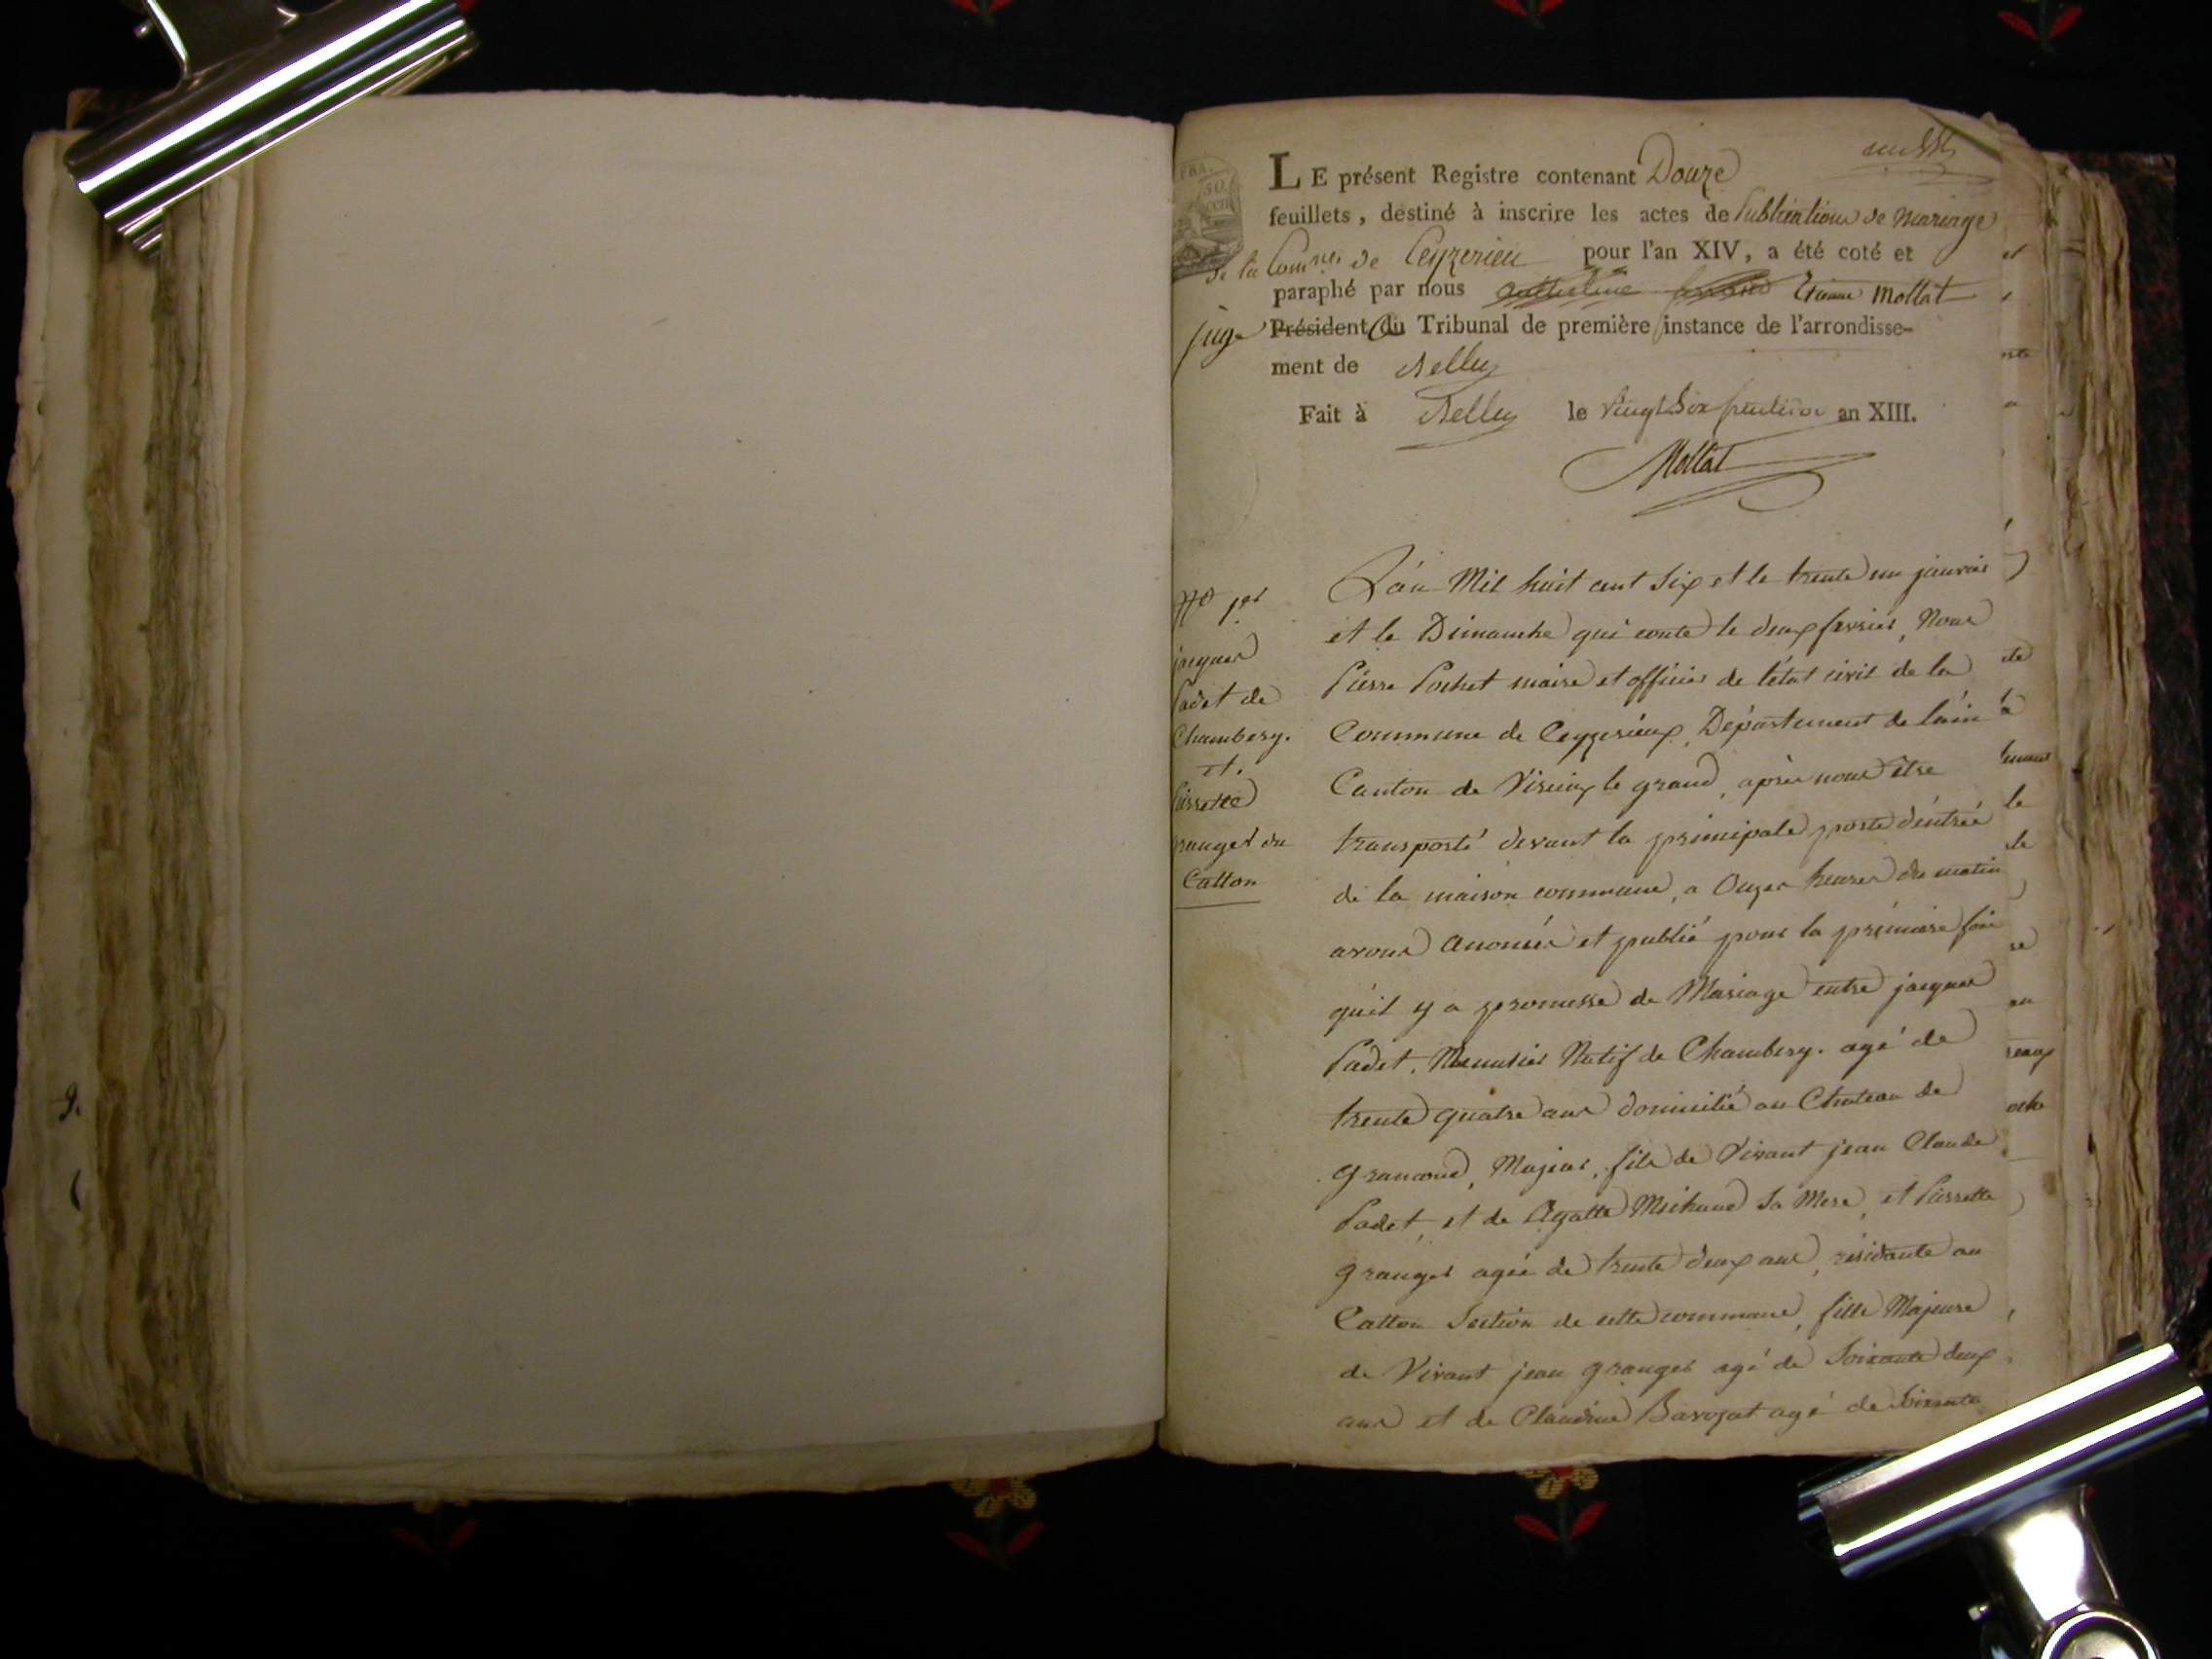 LE présent Registre contenant Douze
feuillets, destiné à inscrire les actes de Publications de mariage
de la Comne de Ceyzerieu pour l'an XIV, a été coté et
paraphé par nous Etienne Mollat
juge Président du Tribunal de première instance de l'arrondisse-
ment de Belley
Fait à Belley le vingt six fructidor an XIII.
Mollat
No 1er
jacques
Padet de
Chambery.
et.
Pierrette
granger du
Catton
L'an Mil huit cent Six et le trente un janvier
et le Dimanche qui conte le deux fevrier, Nous
Pierre Pochet maire et officier de l'état civil de la
Commune de Ceyzerieux, Département de l'ain
Canton de Virieux le grand, après nous être
transporté devant la principale porte d'entrée
de la maison commune, a Onzes heures du matin
avons anoncés et publié pour la première fois
qu'il y a promesse de Mariage entre jacques
Padet, Menusier Natif de Chambery. agé de
trente quatre ans domicilié au Chateau de
Grammond, Majeur, fils de Vivant jean Claude
Padet, et de Agatte Michaud Sa Mere, et Pierrette
granger agée de trente deux ans, résidante au
Catton Section de cette commune, fille Majeure
de Vivant jean granger agé de Soixante deux
ans et de Claudine Bavozat agé de Soixante